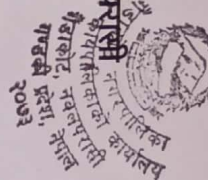 नगरपालिका
कार्यपालिकाको कार्यालय
गैंडाकोट नवलपरासी
गण्डकी प्रदेश, नेपाल
२०७३
परासी